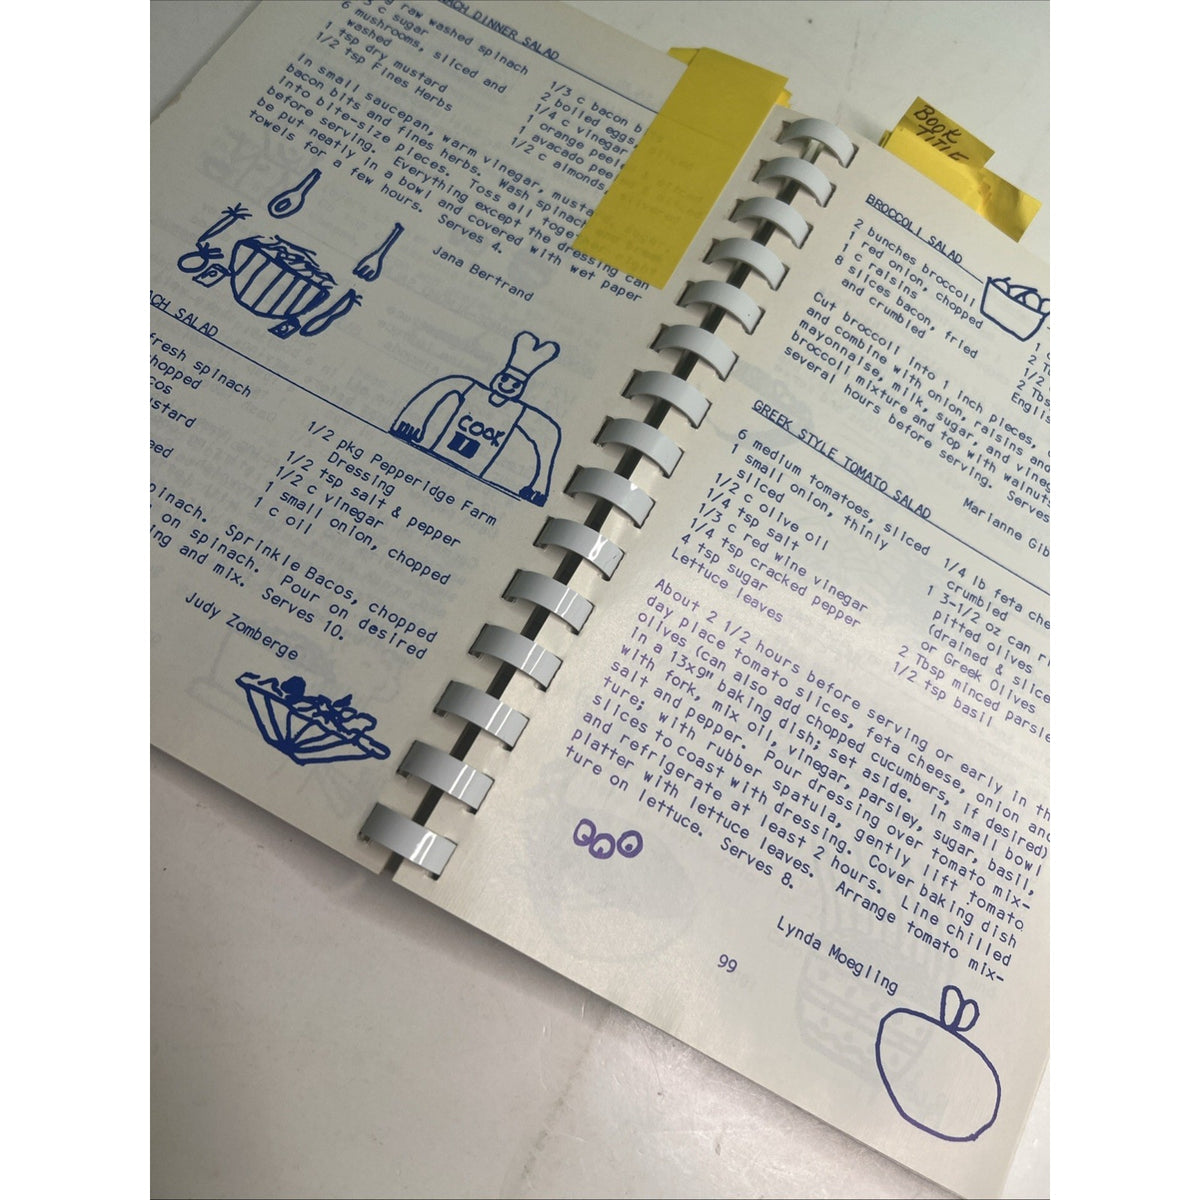 DINNER SALAD
raw washed spinach
c sugar
6 mushrooms, sliced and
washed
1 tsp dry mustard
1/2 tsp Fines Herbs
1/3 c bacon
2 boiled eggs
1/4 c vinegar
1 orange
1 avacado
1/2 c almonds
In small saucepan, warm vinegar,
bacon bits and fines herbs. Wash
into bite-size pieces. Toss all
before serving. Everything except the dressing can
be put neatly in a bowl and covered with wet paper
towels for a few hours. Serves 4.
Jana Bertrand
COOK
SALAD
fresh spinach
1/2 pkg Pepperidge Farm
Dressing
1/2 tsp salt & pepper
1/2 c vinegar
1 small onion, chopped
1 c oil
Sprinkle Bacos, chopped
on spinach. Pour on desired
and mix. Serves 10.
Judy Zomberge
BOOK
TITLE
BROCCOLI SALAD
2 bunches broccoli
1 red onion, chopped
1 c raisins
8 slices bacon, fried
and crumbled
1
2
1/2
2 Tbs
Cut broccoli into 1 inch pieces,
and combine with onion, raisins and
mayonnaise, milk, sugar, and
broccoli mixture and top with
several hours before serving. Serves
Marianne
GREEK STYLE TOMATO SALAD
6 medium tomatoes, sliced
1 small onion, thinly
sliced
1/2 c olive oil
1/4 tsp salt
1/3 c red wine vinegar
1/4 tsp cracked pepper
4 tsp sugar
Lettuce leaves
1/4 lb feta
crumbled
1 3-1/2 oz can
pitted olives
(drained &
or Greek Olives
2 Tbsp minced
1/2 tsp basil
About 2 1/2 hours before serving or early in
day place tomato slices, feta cheese, onion and
olives (can also add chopped cucumbers, if desired)
in a 13x9" baking dish; set aside. In small bowl
with fork, mix oil, vinegar, parsley, sugar, basil,
salt and pepper. Pour dressing over tomato mix-
ture; with rubber spatula, gently lift tomato
slices to coast with dressing. Cover baking dish
and refrigerate at least 2 hours. Line chilled
platter with lettuce leaves. Arrange tomato mix-
ture on lettuce. Serves 8.
Lynda Moegling
99